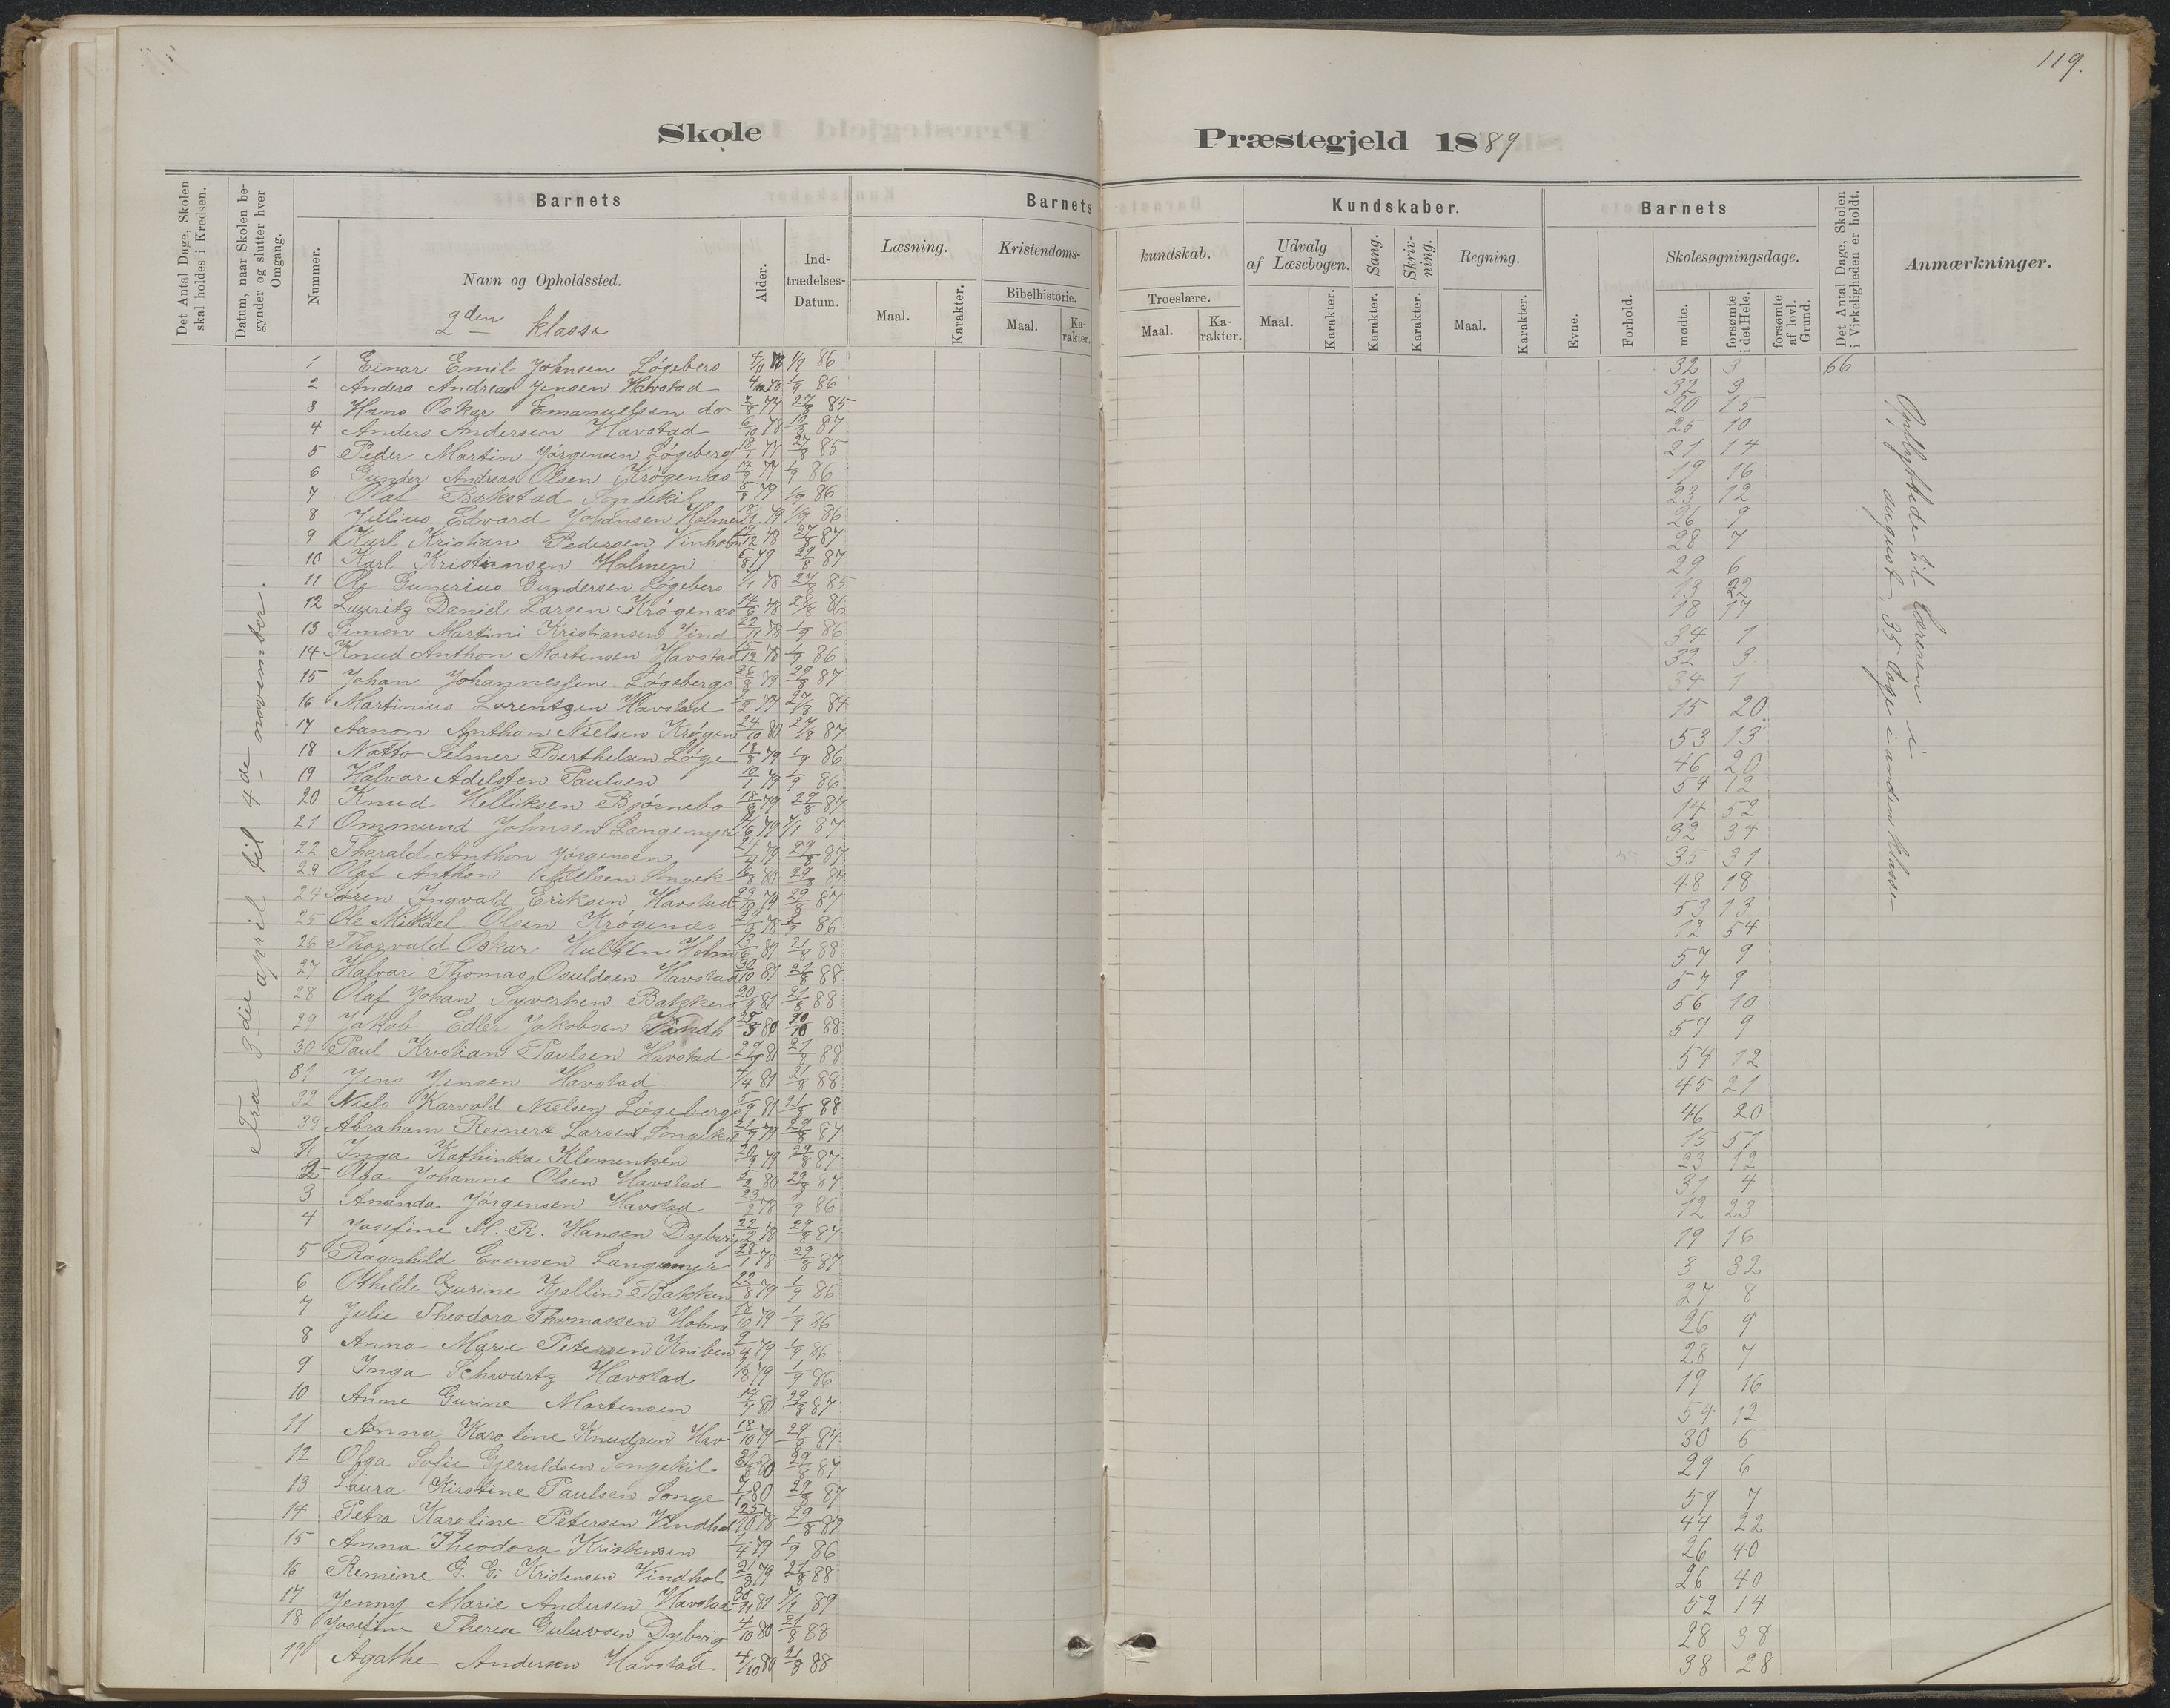 119.
Skole Præstegjeld 1889
Det Antal Dage, Skolen skal holdes i Kredsen.
Datum, naar Skolen begynder og slutter hver Omgang.
Nummer.
Barnets
Navn og Opholdssted.
2den klasse
Alder.
Indtrædelses-Datum.
Læsning.
Maal.
Karakter.
Barnets
Kristendoms-
kundskab.
Bibelhistorie.
Maal.
Karakter.
Troeslære.
Maal.
Karakter.
Kundskaber.
Udvalg af Læsebogen.
Maal.
Karakter.
Sang.
Karakter.
Skrivning.
Karakter.
Regning.
Maal.
Karakter.
Barnets
Evne.
Forhold.
Skolesøgningsdage.
mødte.
forsømte i det Hele.
forsømte af lovl. Grund.
Det Antal Dage, Skolen i Virkeligheden er holdt.
Anmærkninger.
Fra 3die april til 4de november.
1 Einar Emil Johnsen Løgebers 4/11 78 1/9 86 32 3 66
2 Anders Andreas Jensen Havstad 78 1/9 86 32 3
3 Hans Oskar Emanuelsen do 77 27/8 85 20 15
4 Anders Andersen Havstad 6/10 78 87 25 10
5 Peder Martin Jørgensen Løgeberg 18/1 77 27/8 85 21 14
6 Gunder Andreas Olsen Krøgenæs 77 1/9 86 19 16
7 Olaf Bakstad Songekil 79 1/9 86 23 12
8 Jullius Edvard Johansen Holmen 79 1/9 86 26 9
9 Karl Kristian Pedersen Vinholm 78 87 28 7
10 Karl Kristiansen Holmen 5/8 79 29/8 87 29 6
11 Ole Gunerius Gundersen Løgebers 78 27/8 85 13 22
12 Lauritz Daniel Larsen Krøgenæs 14/6 78 28/8 86 18 17
13 Simon Martini Kristiansen Vind 22/11 78 1/9 86 34 1
14 Knud Anthon Mortensen Havstad 15/12 78 1/9 86 32 3
15 Johan Johannessen Løgebergs 79 29/8 87 34 1
16 Martinius Lorentzen Havstad 77 27/8 84 15 20.
17 Aanon Anthon Nielsen Krøgen 24/10 80 87 53 13
18 Notto Selmer Berthelsen Løge 18/8 79 1/9 86 46 20
19 Halvar Adelsten Paulsen 10/1 79 1/9 86 54 12
20 Knud Helliksen Bjørnebo 79 29/8 87 14 52
21 Ommund Johnsen Langemyr 79 87 32 34
22 Tharald Anthon Jørgensen 79 29/8 87 35 31
23 Olaf Anthon Nielsen Songek 80 29/8 87 48 18
24 Søren Ingvald Eriksen Havstad 23/10 79 29/8 87 53 13
25 Ole Mikael Olsen Krøgenæs 78 86 12 54
26 Thorvald Oskar Hultén Holm 81 21/8 88 57 9
27 Halvar Thomas Osuldsen Havstad 30/10 81 21/8 88 57 9
28 Olaf Johan Syvertsen Bakken 20/9 81 21/8 88 56 10
29 Jakob Edler Jakobsen Vindh 80 88 57 9
30 Paul Kristian Paulsen Havstad 81 21/8 88 54 12
31 Jens Jensen Havstad 4/4 81 21/8 88 45 21
32 Niels Karvold Nielsen Løgebergs 5/9 81 21/8 88 46 20
33 Abraham Reinert Larsen Songekil 79 29/8 87 15 51
1 Inga Kathinka Klementsen 20/9 79 29/8 87 23 12
2 Olga Johanne Olsen Havstad 80 29/8 87 31 4
3 Ananda Jørgensen Havstad 78 1/9 86 12 23
4 Josefine M. R. Hansen Dybvig 22/2 78 29/8 87 19 16
5 Ragnhild Evensen Langemyr 28/1 78 29/8 87 3 32
6 Othilde Gurine Kjellin Bakken 22/8 79 1/9 86 27 8
7 Julie Theodora Thomassen Holm 18/10 79 1/9 86 26 9
8 Anna Marie Petersen Kniben 9/4 79 1/9 86 28 7
9 Inga Schwartz Havstad 79 1/9 86 19 16
10 Anne Gurine Mortensen 80 29/8 87 54 12
11 Anna Karoline Knudsen Hav 18/10 79 29/8 87 30 5
12 Olga Sofie Gjeruldsen Songekil 80 29/8 87 29 6
13 Laura Kirstine Paulsen Songe 80 29/8 87 59 7
14 Petra Karoline Petersen Vindhol 25/10 78 29/8 87 44 22
15 Anna Theodora Kristensen 1/4 79 1/9 86 26 40
16 Remine G. G. Kristensen Vindhol 79 21/8 88 26 40
17 Jenny Marie Andersen Havstad 81 89 52 14
18 Josefine Therese Guluvsen Dybvig 4/10 80 21/8 88 28 38
19 Agathe Andersen Havstad 4/10 80 21/8 88 38 28
Opflyttede til Læreren i
august, 35 dage i anden klasse